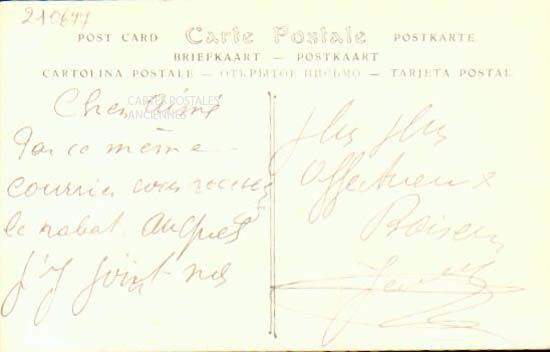 210677
POST CARD Carte Postale POSTKARTE
BRIEFKAART — POSTKAART
CARTOLINA POSTALE — ОТКРЫТОЕ ПИСЬМО — TARJETA POSTAL
CARTES POSTALES
ANCIENNES
Cher Aimé
Par ce même
courrier vous recevez
le rabat auquel
j'y joint nos
plus plus
affectueux
Baisers